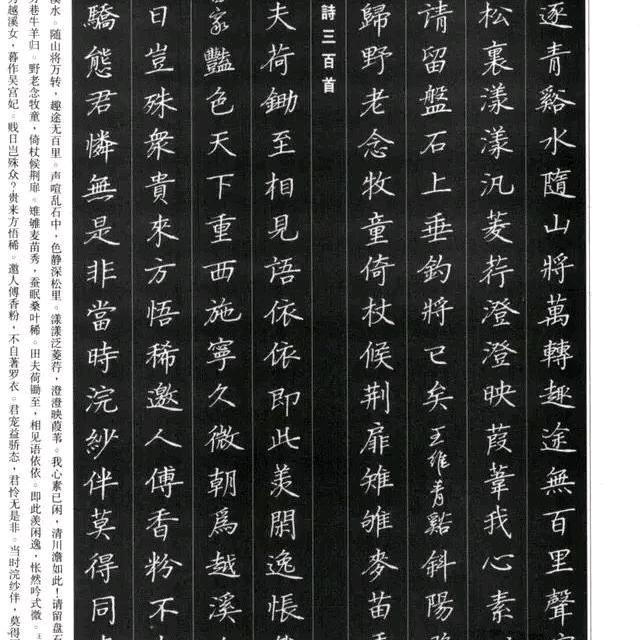 逐青谿水隨山將萬轉趣途無百里聲
松裏漾漾汎菱荇澄澄映葭葦我心素
請留盤石上垂釣將已矣王維青谿斜陽
歸野老念牧童倚杖候荆扉雉雊麥苗
詩三百首
夫荷鋤至相見語依依即此羨閑逸悵
豔色天下重西施寧久微朝爲越溪
日豈殊衆貴來方悟稀邀人傅香粉不
驕態君憐無是非當時浣紗伴莫得同
溪水。随山将万转，趣途无百里。声喧乱石中，色静深松里。漾漾泛菱荇，澄澄映葭苇。我心素已闲，清川澹如此！请留盘石
巷牛羊归。野老念牧童，倚杖候荆扉。雉雊麦苗秀，蚕眠桑叶稀。田夫荷锄至，相见语依依。即此羡闲逸，怅然吟式微。
越溪女，暮作吴宫妃。贱日岂殊众？贵来方悟稀。邀人傅香粉，不自著罗衣。君宠益骄态，君怜无是非。当时浣纱伴，莫得